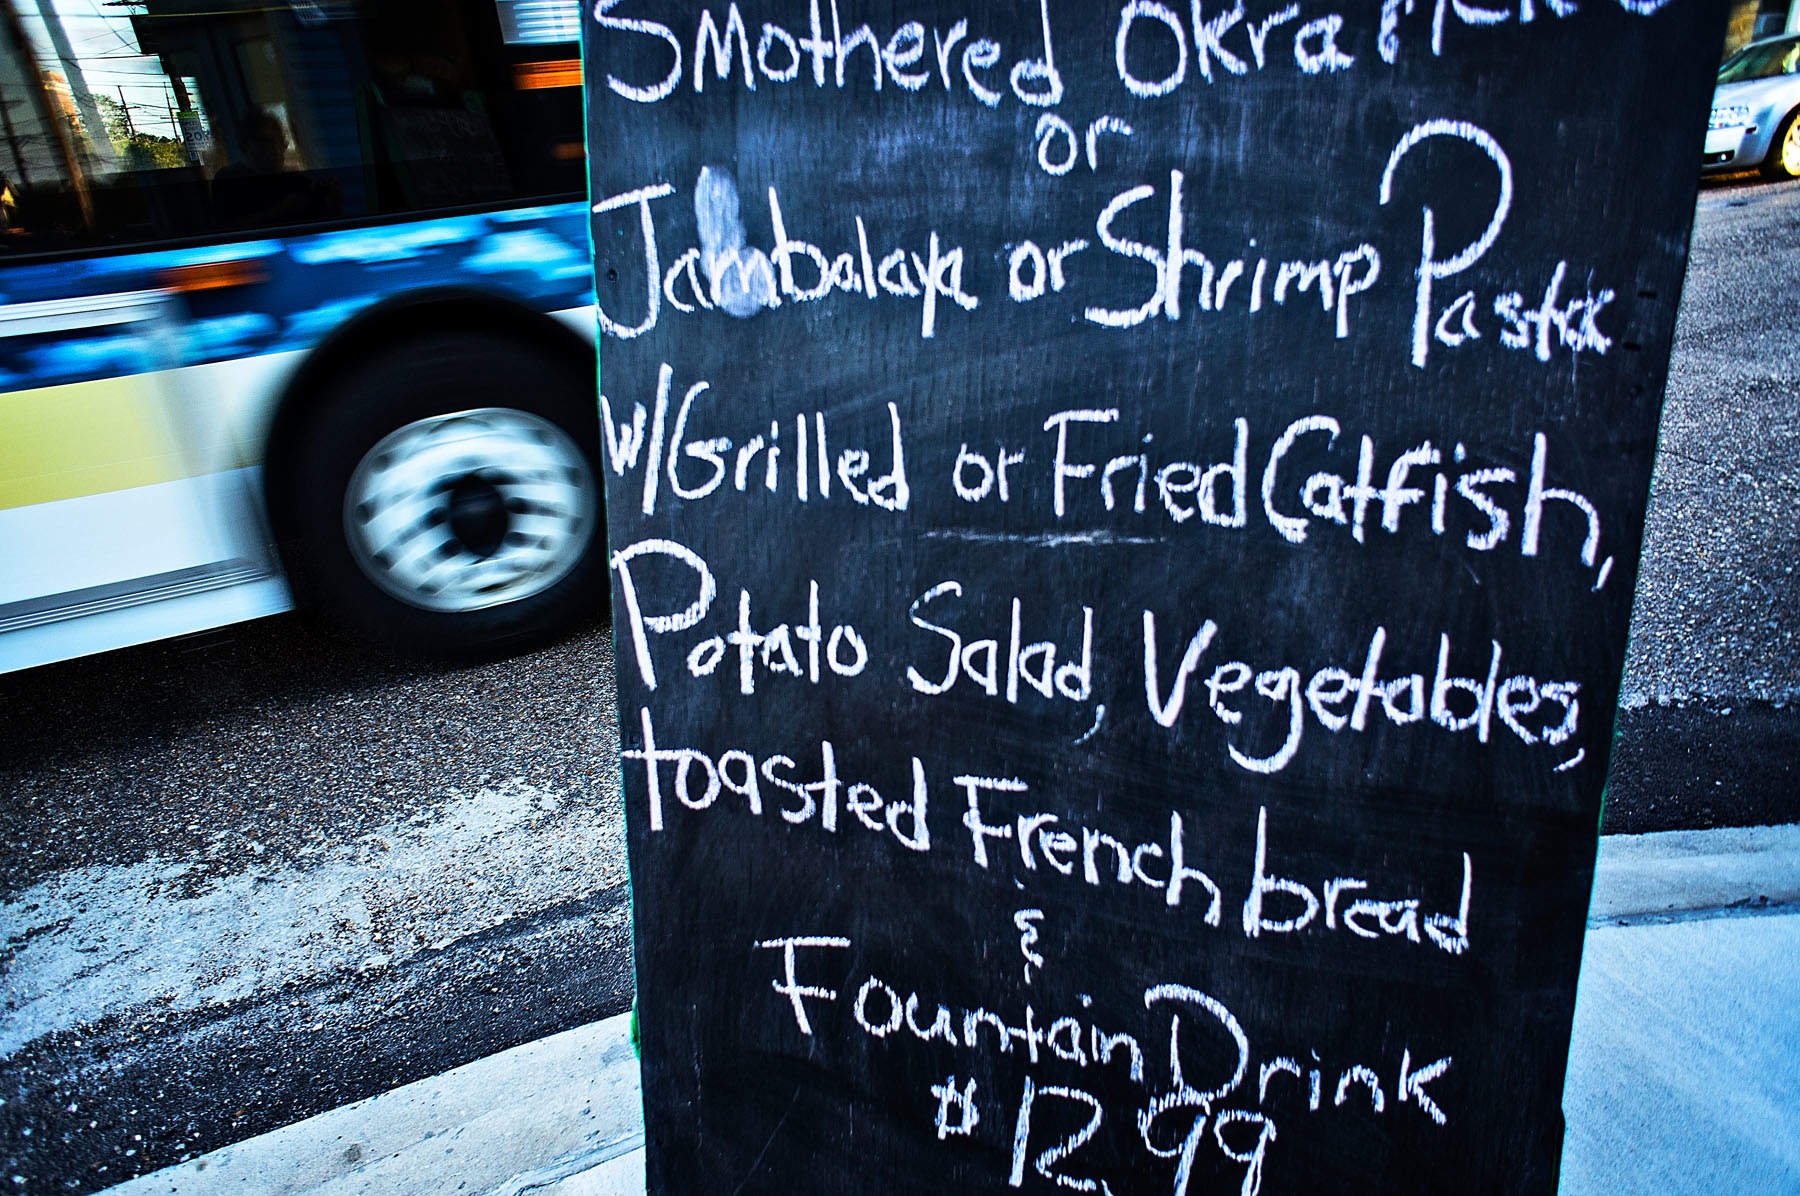 Smothered Okra
or
Jambalaya or Shrimp Pasta
w/Grilled or Fried Catfish,
Potato Salad, Vegetables,
toasted French bread
&
Fountain Drink
$12.99